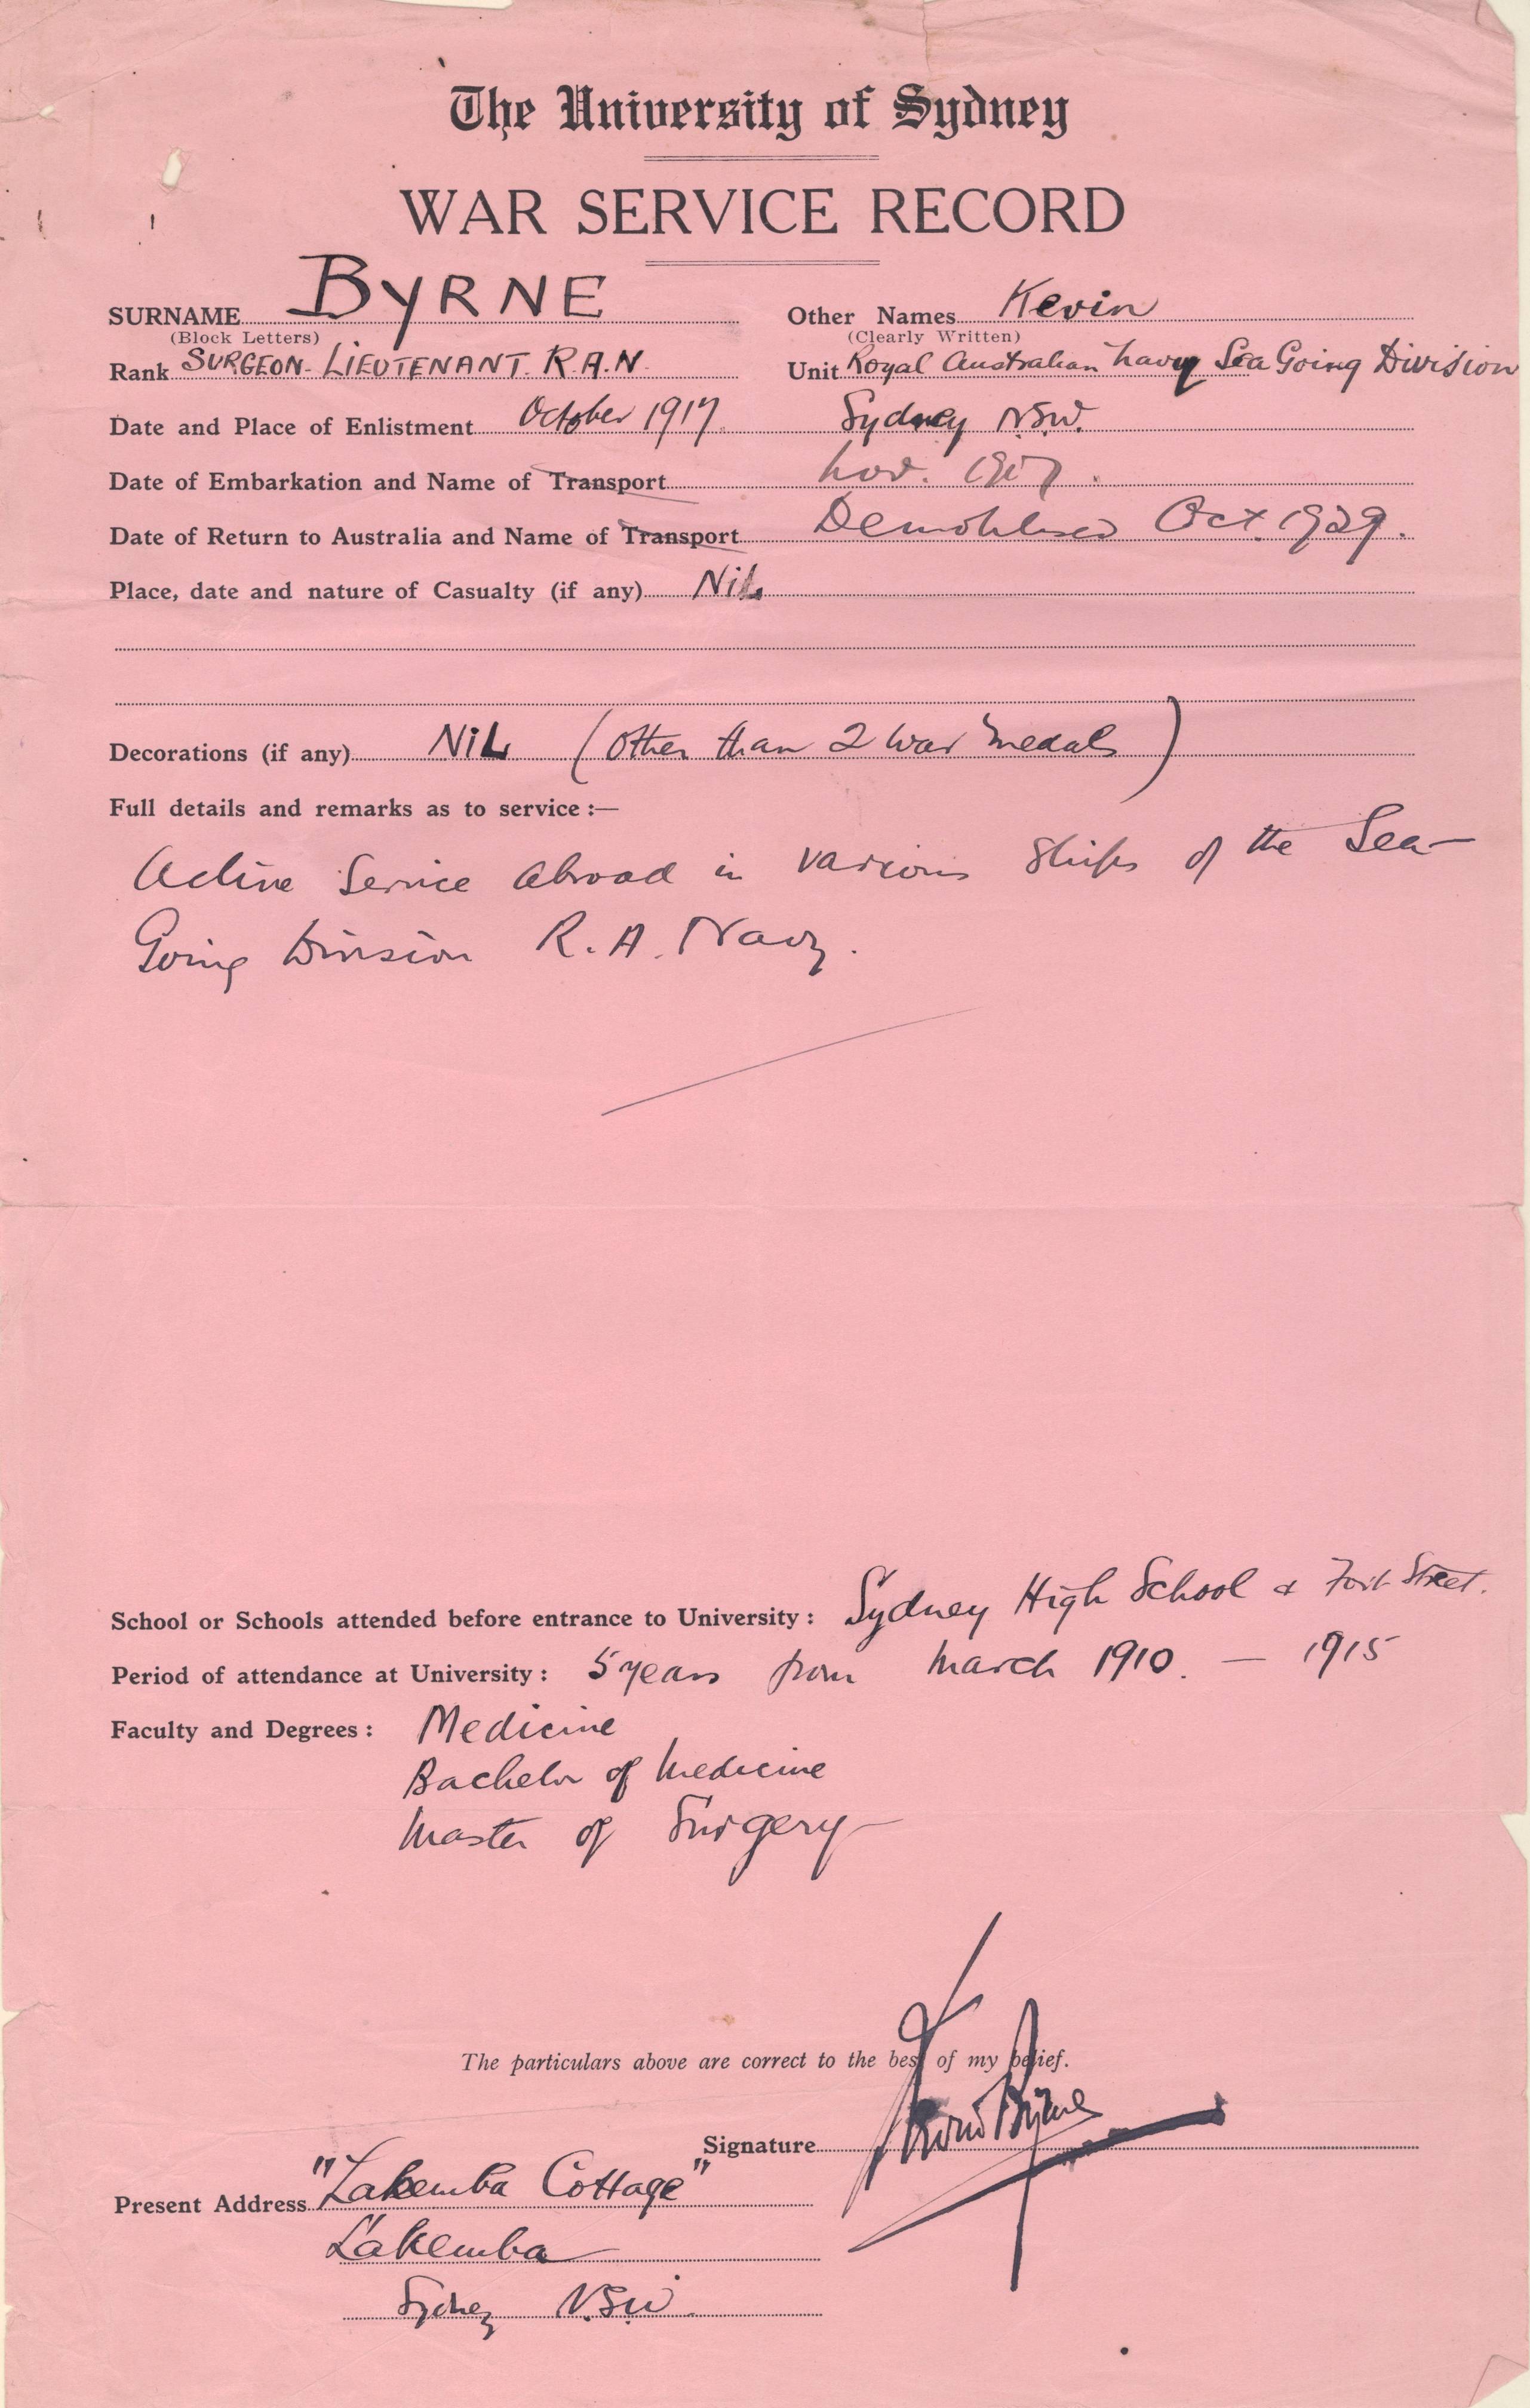 The University of Sydney
WAR SERVICE RECORD
SURNAME BYRNE Other Names Kevin
(Block Letters) (Clearly Written)
Rank SURGEON-LIEUTENANT R.A.N. Unit Royal Australian Navy Sea Going Division
Date and Place of Enlistment October 1917 Sydney N.S.W.
Date of Embarkation and Name of Transport Nov. 1917.
Date of Return to Australia and Name of Transport Demobilised Oct. 1929.
Place, date and nature of Casualty (if any) NiL
Decorations (if any) NiL (Other than 2 War Medals)
Full details and remarks as to service :—
Active Service Abroad in various Ships of the Sea-
Going Division R.A. Navy.
School or Schools attended before entrance to University : Sydney High School & Fort Street.
Period of attendance at University : 5 years from March 1910. — 1915
Faculty and Degrees : Medicine
Bachelor of Medicine
Master of Surgery
The particulars above are correct to the best of my belief.
Signature Kevin Byrne
Present Address "Lakemba Cottage"
Lakemba
Sydney N.S.W.